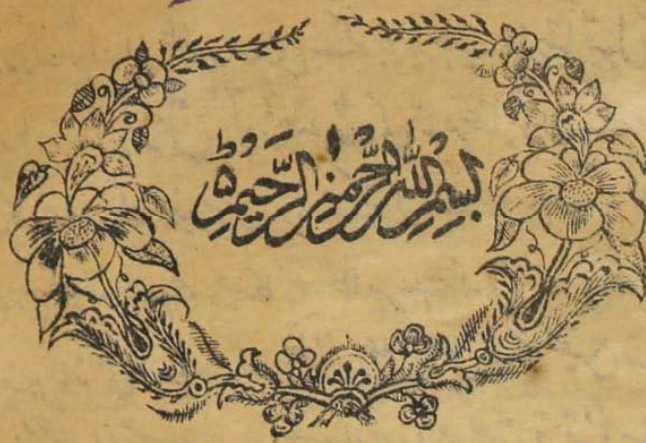 بِسْمِ اللّٰهِ الرَّحْمٰنِ الرَّحِيْمِ ۵ ط